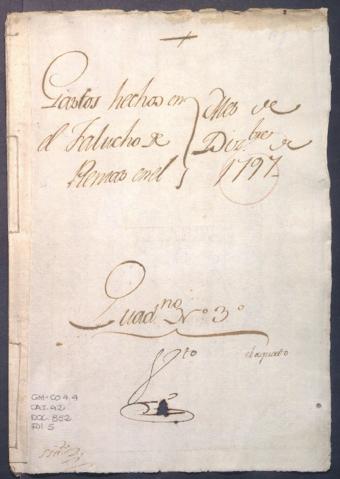 Gastos hechos en
el Falucho de
Rentas en el
Mes de
Dizbre de
1797
Quadno No 3o
GM-CO 4.4
CAJ. 42
DOC. 852
FOL 5